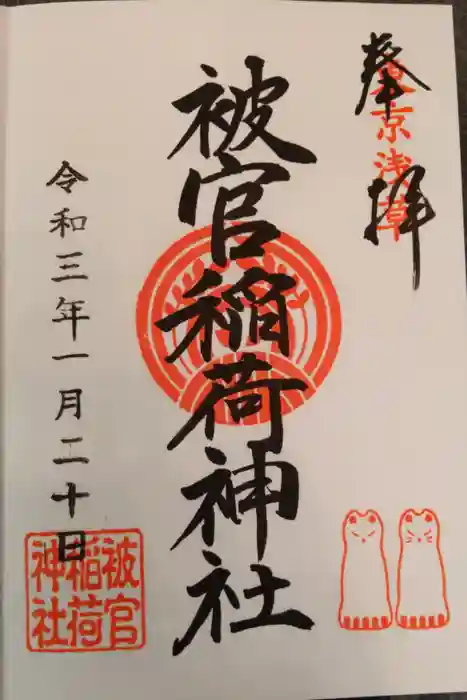 奉拝
東京浅草
被官稲荷神社
令和三年一月二十日
被官
稲荷
神社